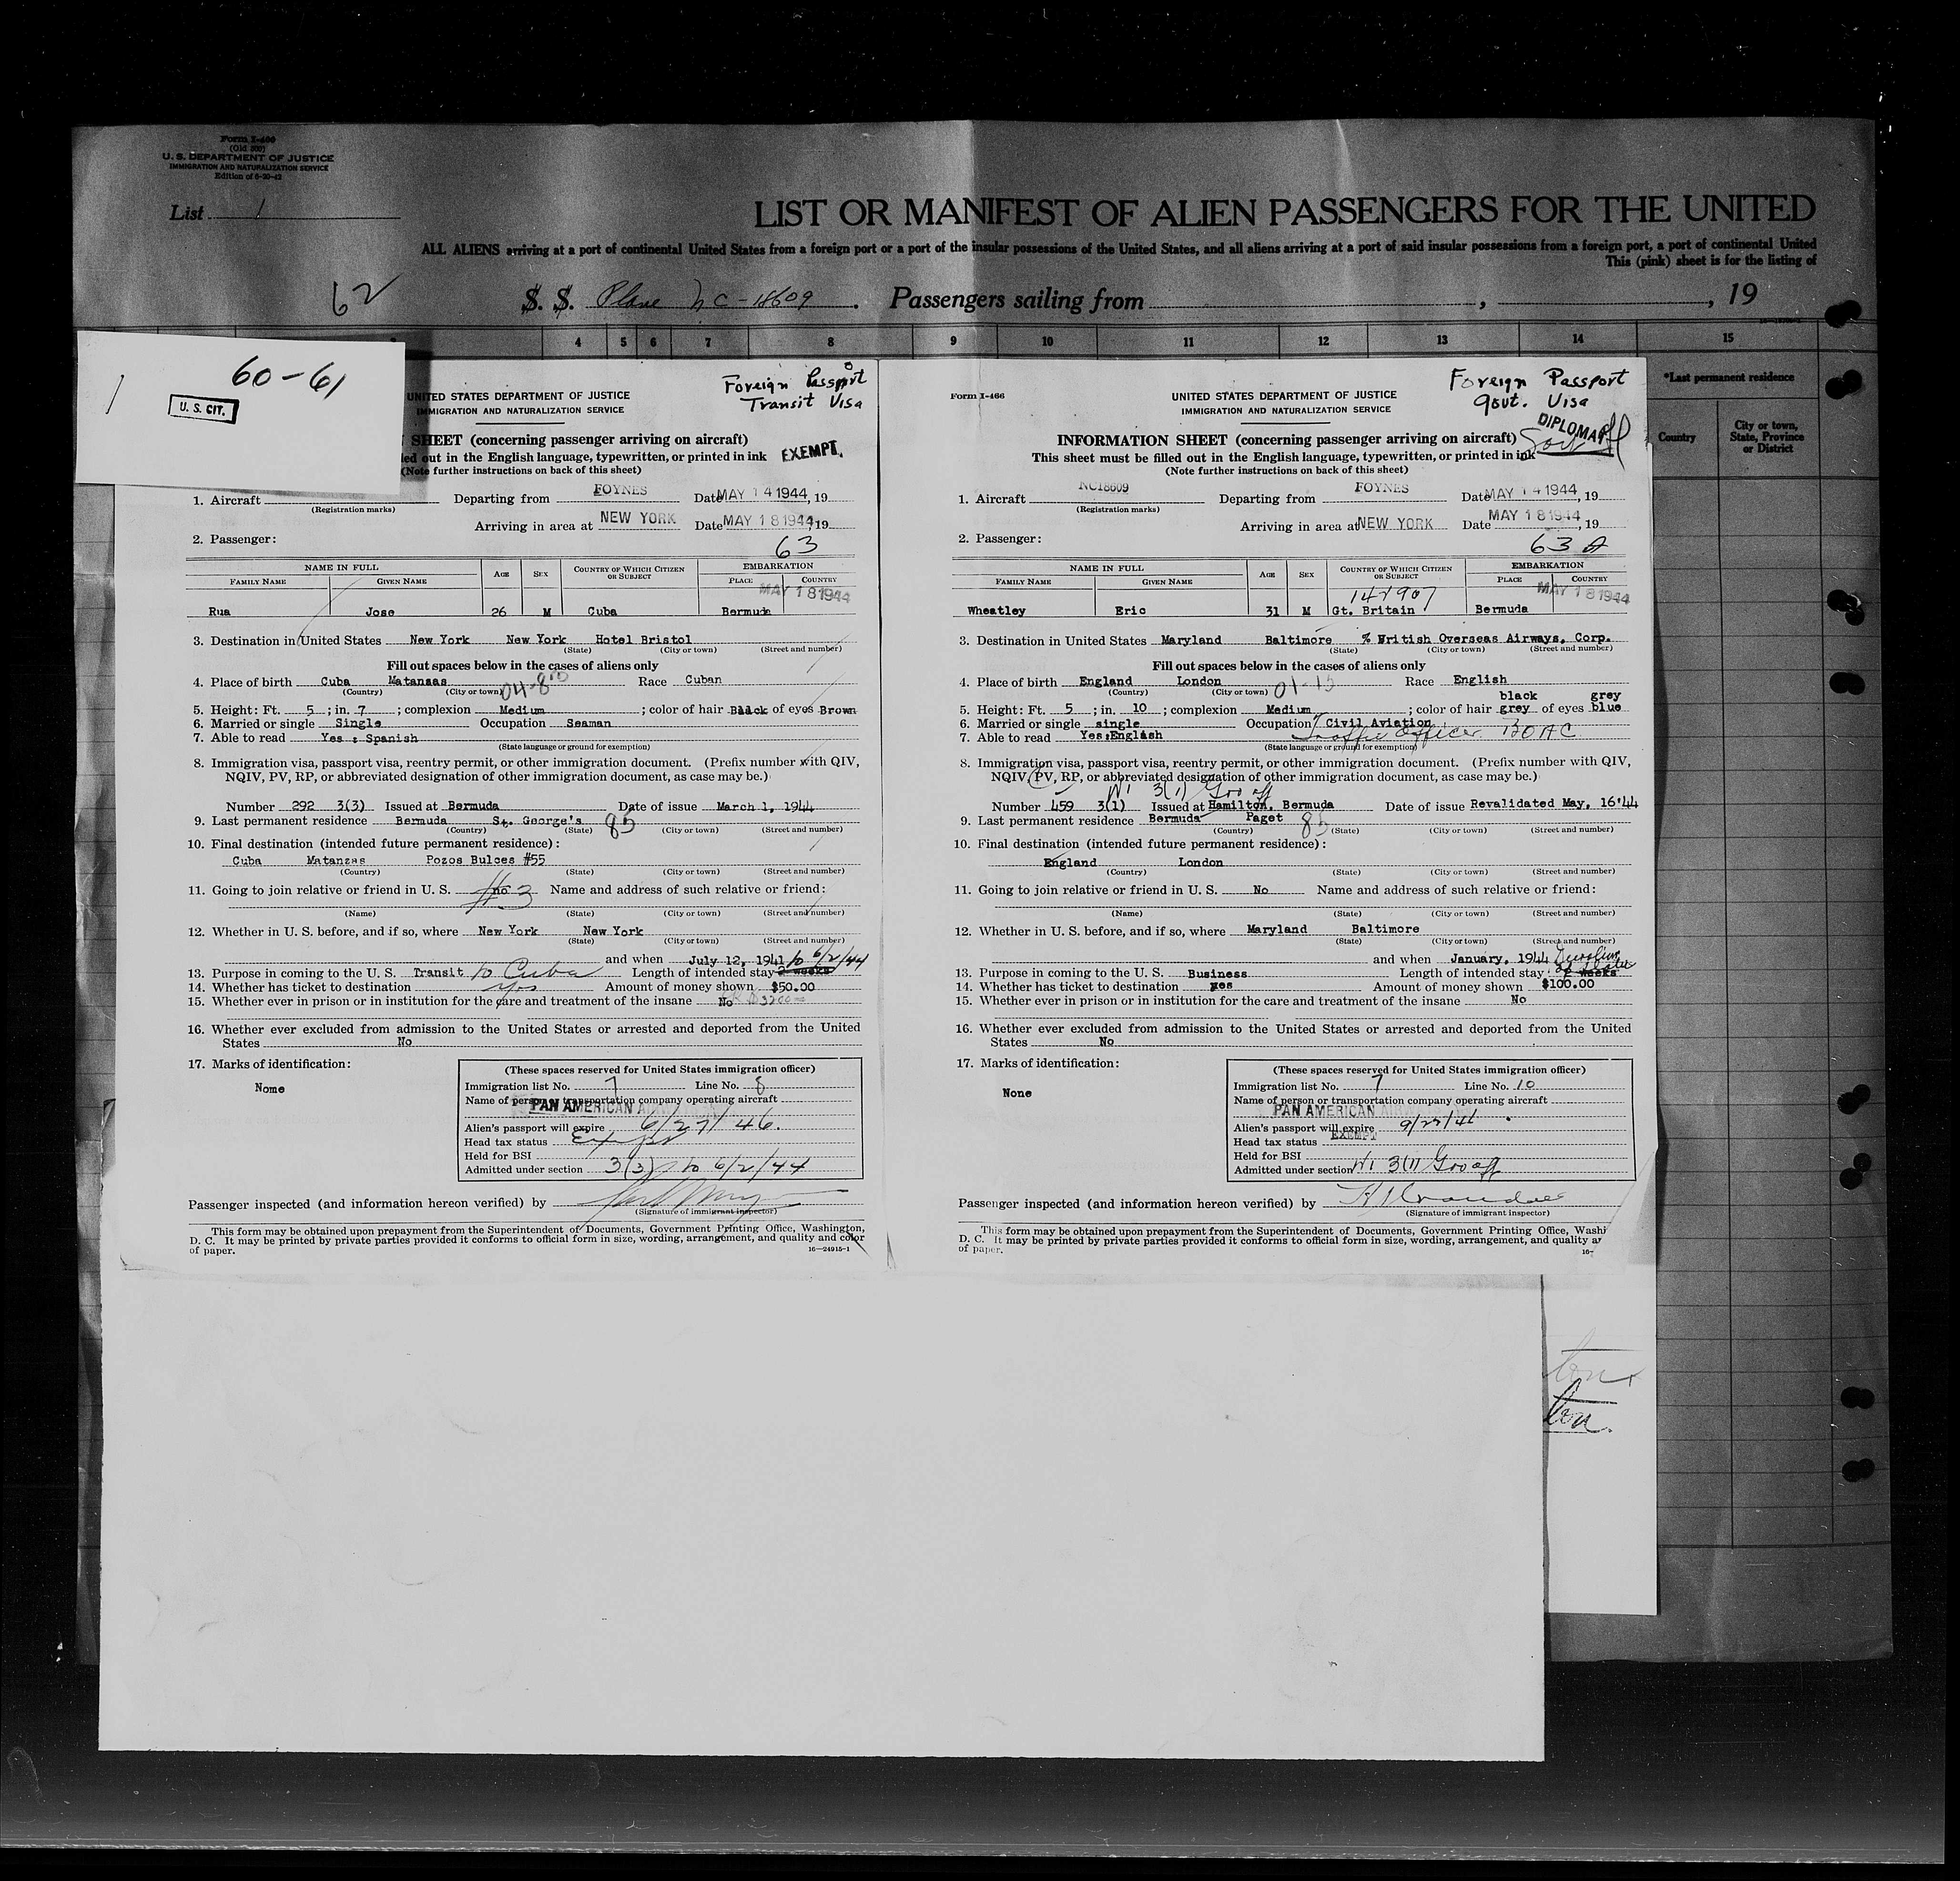 Form I-466
(Old 500)
U. S. DEPARTMENT OF JUSTICE
IMMIGRATION AND NATURALIZATION SERVICE
Edition of 5-20-42
List 1
LIST OR MANIFEST OF ALIEN PASSENGERS FOR THE UNITED
ALL ALIENS arriving at a port of continental United States from a foreign port or a port of the insular possessions of the United States, and all aliens arriving at a port of said insular possessions from a foreign port, a port of continental United
This (pink) sheet is for the listing of
62
S. S. Plane NC-18609. Passengers sailing from , , 19
3 4 5 6 7 8 9 10 11 12 13 14 15
*Last permanent residence
Country
City or town, State, Province or District
1
60-61
U. S. CIT.
UNITED STATES DEPARTMENT OF JUSTICE
IMMIGRATION AND NATURALIZATION SERVICE
Foreign Passport
Transit Visa
SHEET (concerning passenger arriving on aircraft)
ed out in the English language, typewritten, or printed in ink
EXEMPT.
(Note further instructions on back of this sheet)
1. Aircraft Departing from FOYNES Date MAY 14 1944, 19
(Registration marks)
Arriving in area at NEW YORK Date MAY 18 1944, 19
2. Passenger: 63
NAME IN FULL
FAMILY NAME GIVEN NAME AGE SEX COUNTRY OF WHICH CITIZEN OR SUBJECT EMBARKATION PLACE COUNTRY
MAY 18 1944
Rua Jose 26 M Cuba Bermuda
3. Destination in United States New York New York Hotel Bristol
(State) (City or town) (Street and number)
Fill out spaces below in the cases of aliens only
4. Place of birth Cuba Matansas Race Cuban
(Country) (City or town)
5. Height: Ft. 5; in. 7; complexion Medium; color of hair Black of eyes Brown
6. Married or single Single Occupation Seaman
7. Able to read Yes : Spanish
(State language or ground for exemption)
8. Immigration visa, passport visa, reentry permit, or other immigration document. (Prefix number with QIV,
NQIV, PV, RP, or abbreviated designation of other immigration document, as case may be.)
Number 292 3(3) Issued at Bermuda Date of issue March 1, 1944
9. Last permanent residence Bermuda St. George's 85
(Country) (State) (City or town) (Street and number)
10. Final destination (intended future permanent residence):
Cuba Matanzas Pozos Bulces #55
(Country) (State) (City or town) (Street and number)
11. Going to join relative or friend in U. S. no #3 Name and address of such relative or friend:
(Name) (State) (City or town) (Street and number)
12. Whether in U. S. before, and if so, where New York New York
(State) (City or town) (Street and number)
and when July 12, 1941 to 6/2/44
13. Purpose in coming to the U. S. Transit to Cuba Length of intended stay 2 weeks
14. Whether has ticket to destination Yes Amount of money shown $50.00
15. Whether ever in prison or in institution for the care and treatment of the insane No
16. Whether ever excluded from admission to the United States or arrested and deported from the United
States No
17. Marks of identification:
Nome
(These spaces reserved for United States immigration officer)
Immigration list No. 7 Line No. 8
Name of person or transportation company operating aircraft
PAN AMERICAN AIRWAYS
Alien's passport will expire 6/27/46.
Head tax status Exempt
Held for BSI
Admitted under section 3(3) to 6/2/44
Passenger inspected (and information hereon verified) by
(Signature of immigrant inspector)
This form may be obtained upon prepayment from the Superintendent of Documents, Government Printing Office, Washington,
D. C. It may be printed by private parties provided it conforms to official form in size, wording, arrangement, and quality and color
of paper. 16—24915-1
Form I-466
UNITED STATES DEPARTMENT OF JUSTICE
IMMIGRATION AND NATURALIZATION SERVICE
Foreign Passport
Govt. Visa
DIPLOMAT
INFORMATION SHEET (concerning passenger arriving on aircraft)
This sheet must be filled out in the English language, typewritten, or printed in ink
(Note further instructions on back of this sheet)
1. Aircraft NC18609 Departing from FOYNES Date MAY 14 1944, 19
(Registration marks)
Arriving in area at NEW YORK Date MAY 18 1944, 19
2. Passenger: 63 A
NAME IN FULL
FAMILY NAME GIVEN NAME AGE SEX COUNTRY OF WHICH CITIZEN OR SUBJECT EMBARKATION PLACE COUNTRY
MAY 18 1944
Wheatley Eric 31 M Gt. Britain Bermuda
3. Destination in United States Maryland Baltimore % Writish Overseas Airways, Corp.
(State) (City or town) (Street and number)
Fill out spaces below in the cases of aliens only
4. Place of birth England London Race English
(Country) (City or town)
black grey
5. Height: Ft. 5; in. 10; complexion Medium; color of hair grey of eyes blue
6. Married or single single Occupation Civil Aviation
7. Able to read Yes:English Traffic Officer BOAC
(State language or ground for exemption)
8. Immigration visa, passport visa, reentry permit, or other immigration document. (Prefix number with QIV,
NQIV, PV, RP, or abbreviated designation of other immigration document, as case may be.)
Number 459 3(1) Issued at Hamilton, Bermuda Date of issue Revalidated May, 16'44
9. Last permanent residence Bermuda Paget 85
(Country) (State) (City or town) (Street and number)
10. Final destination (intended future permanent residence):
England London
(Country) (State) (City or town) (Street and number)
11. Going to join relative or friend in U. S. No Name and address of such relative or friend:
(Name) (State) (City or town) (Street and number)
12. Whether in U. S. before, and if so, where Maryland Baltimore
(State) (City or town) (Street and number)
and when January, 1944
13. Purpose in coming to the U. S. Business Length of intended stay 2 weeks
14. Whether has ticket to destination yes Amount of money shown $100.00
15. Whether ever in prison or in institution for the care and treatment of the insane No
16. Whether ever excluded from admission to the United States or arrested and deported from the United
States No
17. Marks of identification:
None
(These spaces reserved for United States immigration officer)
Immigration list No. 7 Line No. 10
Name of person or transportation company operating aircraft
PAN AMERICAN AIRWAYS
Alien's passport will expire
Head tax status EXEMPT
Held for BSI
Admitted under section 3(1) Gov off
Passenger inspected (and information hereon verified) by
(Signature of immigrant inspector)
This form may be obtained upon prepayment from the Superintendent of Documents, Government Printing Office, Washi
D. C. It may be printed by private parties provided it conforms to official form in size, wording, arrangement, and quality a
of paper. 16-